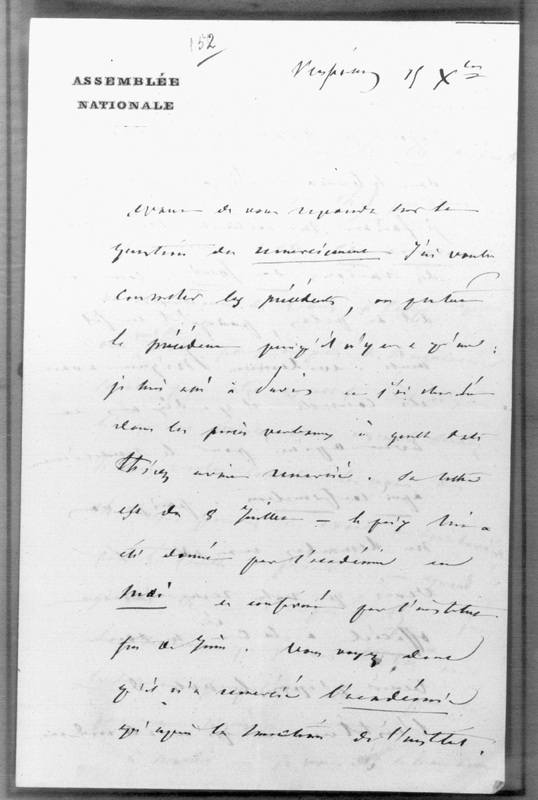 152
ASSEMBLÉE
NATIONALE
15 Xbre
avant de vous répondre sur la
question des remerciements j'ai voulu
consulter les précédents, ou plutôt
le précédent puisqu'il n'y en a qu'un :
je suis allé à Paris et j'ai cherché
dans les procès verbaux à quelle date
Thiers avait remercié. Sa lettre
est du 8 Juillet — le prix lui a
été donné par l'académie en
Mai et confirmé par l'institut
fin de Juin. Vous voyez donc
qu'il n'a remercié l'académie
qu'après la sanction de l'institut.